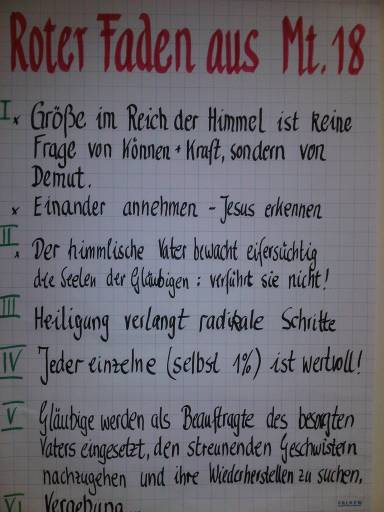 Roter Faden aus Mt. 18
I x Größe im Reich der Himmel ist keine
Frage von Können + Kraft, sondern von
Demut.
x Einander annehmen - Jesus erkennen
II
x Der himmlische Vater bewacht eifersüchtig
die Seelen der Gläubigen : verführt sie nicht!
III Heiligung verlangt radikale Schritte
IV Jeder einzelne (selbst 1%) ist wertvoll!
V Gläubige werden als Beauftragte des besorgten
Vaters eingesetzt, den streunenden Geschwistern
nachzugehen und ihre Wiederherstellen zu suchen.
VI Vergebung...